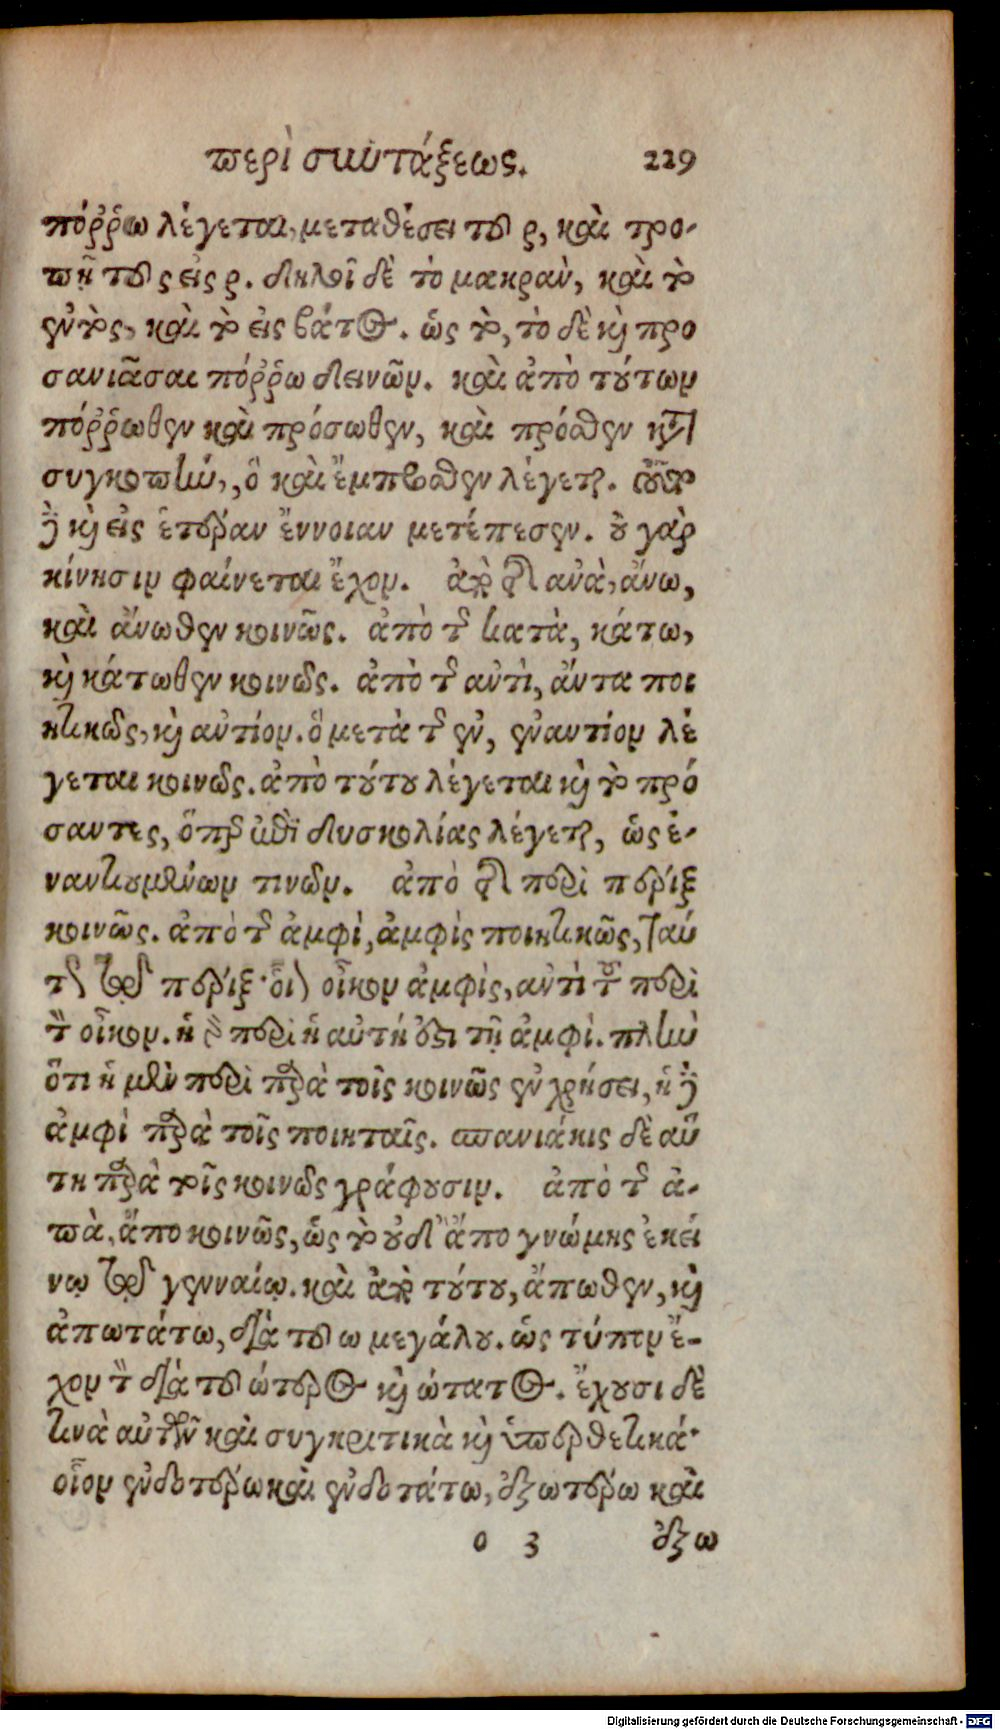 περὶ συντάξεως. 229
πόῤῥω λέγεται, μεταθέσει τοῦ ρ, καὶ τρο-
πῇ τοῦ ς εἰς ρ. δηλοῖ δὲ τὸ μακρὰν, καὶ τὸ
ἐντὸς, καὶ τὸ εἰς βάτος. ὡς τὸ, τὸ δὲ καὶ προ
σανιᾶσαι πόῤῥω δεινῶν. καὶ ἀπὸ τούτων
πόῤῥωθεν καὶ πρόσωθεν, καὶ πρόσθεν κατὰ
συγκοπὴν, ὃ καὶ ἔμπροσθεν λέγεται. ὅπερ
δὲ καὶ εἰς ἑτέραν ἔννοιαν μετέπεσεν. οὐ γὰρ
κίνησιν φαίνεται ἔχον. ἀπὸ τῆς ἀνὰ, ἄνω,
καὶ ἄνωθεν κοινῶς. ἀπὸ τῆς κατὰ, κάτω,
καὶ κάτωθεν κοινῶς. ἀπὸ τῆς ἀντὶ, ἄντα ποι
ητικῶς, καὶ ἀντίον. ὃ μετὰ τῆς ἐν, ἐναντίον λέ
γεται κοινῶς. ἀπὸ τούτου λέγεται καὶ τὸ πρό
σαντες, ὅπερ ἐπὶ δυσκολίας λέγεται, ὡς ἐ-
ναντιουμένων τινῶν. ἀπὸ τῆς περὶ πέριξ
κοινῶς. ἀπὸ τῆς ἀμφὶ, ἀμφὶς ποιητικῶς, ταὐ
τὸν τῷ πέριξ· οἷον οἶκον ἀμφὶς, ἀντὶ τοῦ περὶ
τὸν οἶκον. ἡ γὰρ περὶ ἡ αὐτή ἐστι τῇ ἀμφὶ. πλὴν
ὅτι ἡ μὲν περὶ παρὰ τοῖς κοινῶς ἐν χρήσει, ἡ δὲ
ἀμφὶ παρὰ τοῖς ποιηταῖς. σπανιάκις δὲ αὕ
τη παρὰ τοῖς κοινῶς γράφουσιν. ἀπὸ τῆς ἀ-
πὸ, ἄπο κοινῶς, ὡς τὸ οὐδ' ἄπο γνώμης ἐκεί
νῳ τῷ γενναίῳ. καὶ ἀπὸ τούτου, ἄπωθεν, καὶ
ἀπωτάτω, διὰ τοῦ ω μεγάλου. ὡς τύπον ἔ-
χον τὸν διὰ τοῦ ώτερος καὶ ώτατος. ἔχουσι δὲ
τινὰ αὐτῶν καὶ συγκριτικὰ καὶ ὑπερθετικά·
οἷον ἐνδοτέρω καὶ ἐνδοτάτω, ἐξωτέρω καὶ
ο 3 ἐξω
Digitalisierung gefördert durch die Deutsche Forschungsgemeinschaft - DFG